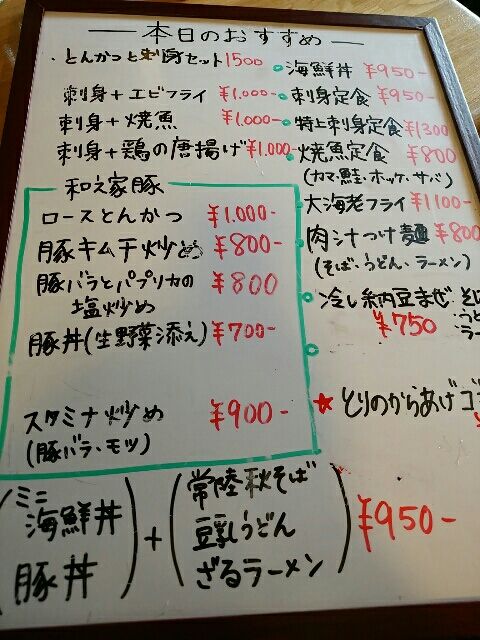 本日のおすすめ
・とんかつと刺身セット 1500
刺身+エビフライ ¥1.000-
刺身+焼魚 ¥1.000-
刺身+鶏の唐揚げ ¥1.000-
和え家豚
ロースとんかつ ¥1.000-
豚キムチ炒め ¥800-
豚バラとパプリカの ¥800
塩炒め
豚丼(生野菜添え) ¥700-
スタミナ炒め ¥900-
(豚バラ、モツ)
海鮮丼 ¥950-
刺身定食 ¥950-
特上刺身定食 ¥1300
焼魚定食 ¥800
(カマ・鮭・ホッケ・サバ)
大海老フライ ¥1100-
肉汁つけ麺 ¥800
(そば、うどん、ラーメン)
冷し納豆まぜそば
¥750 ・うど
ラー
★とりのからあげ
(ミニ海鮮丼
豚丼)
+
(常陸秋そば
豆乳うどん
ざるラーメン)
¥950-